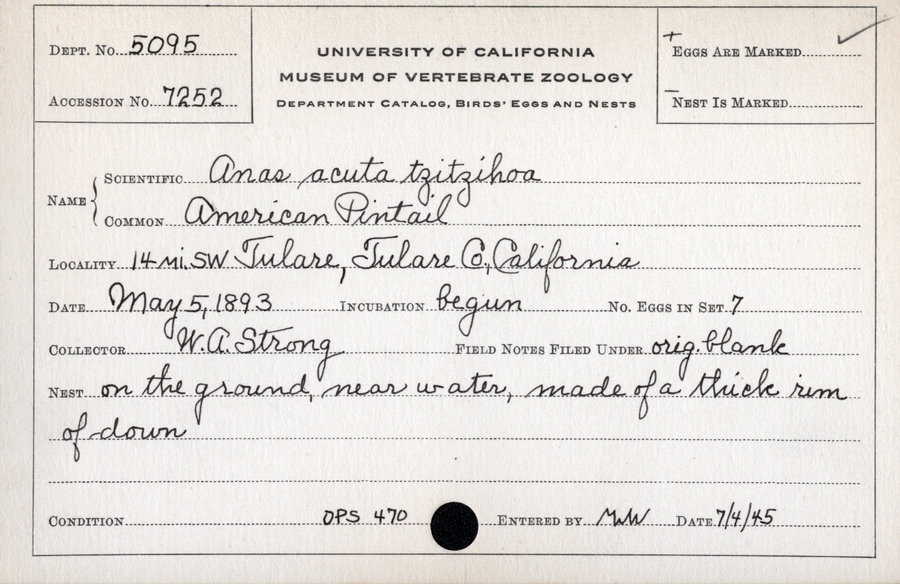 DEPT. NO. 5095
ACCESSION NO. 7252
UNIVERSITY OF CALIFORNIA
MUSEUM OF VERTEBRATE ZOOLOGY
DEPARTMENT CATALOG, BIRDS' EGGS AND NESTS
+ EGGS ARE MARKED ✓
– NEST IS MARKED
NAME { SCIENTIFIC Anas acuta tzitzihoa
COMMON American Pintail
LOCALITY 14 mi. SW Tulare, Tulare Co., California
DATE May 5, 1893 INCUBATION begun NO. EGGS IN SET 7
COLLECTOR W.A. Strong FIELD NOTES FILED UNDER orig. blank
NEST on the ground, near water, made of a thick rim
of down
CONDITION OPS 470 ENTERED BY DATE 7/4/45